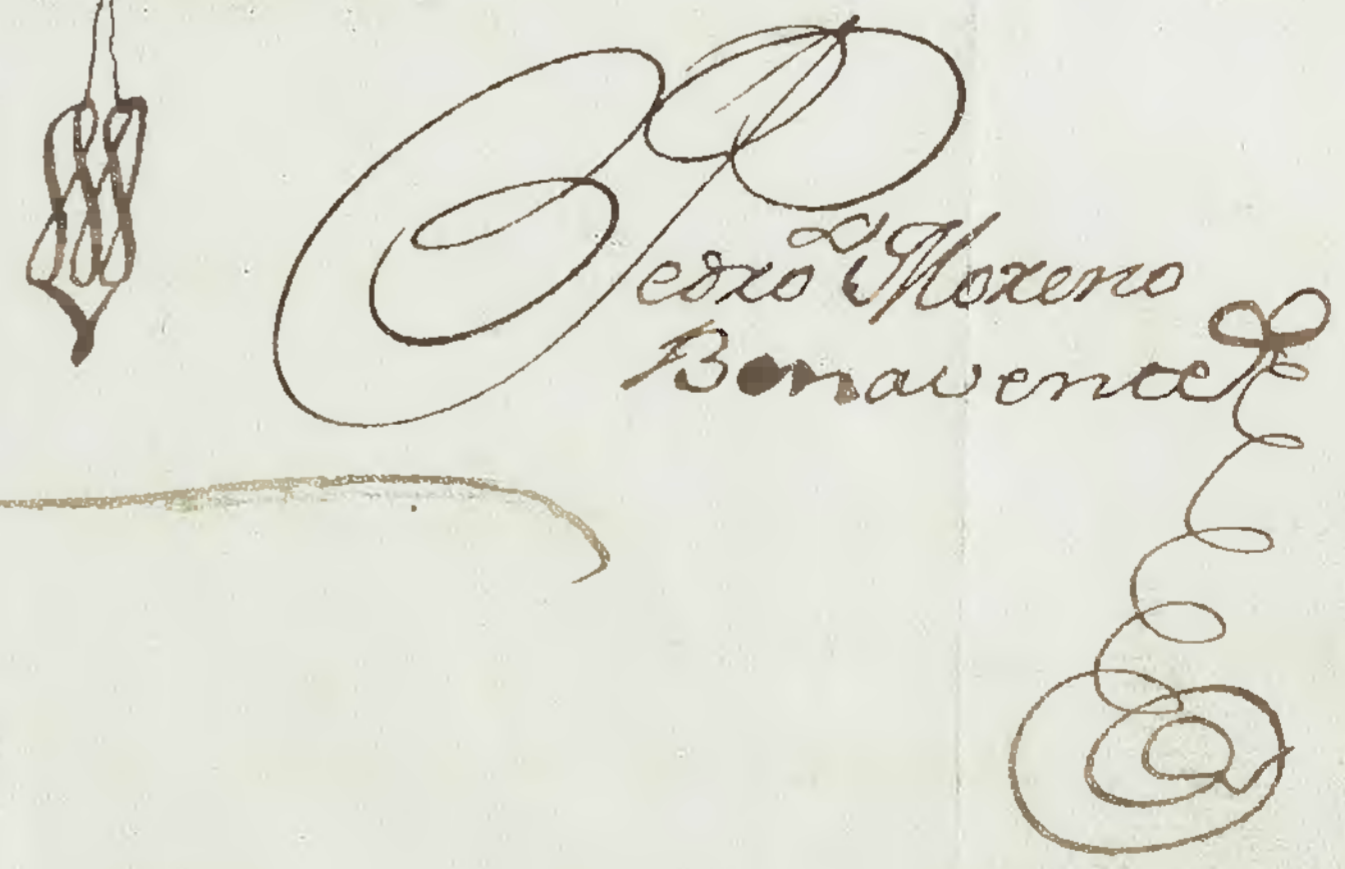 Pedro Moreno
Bonavente